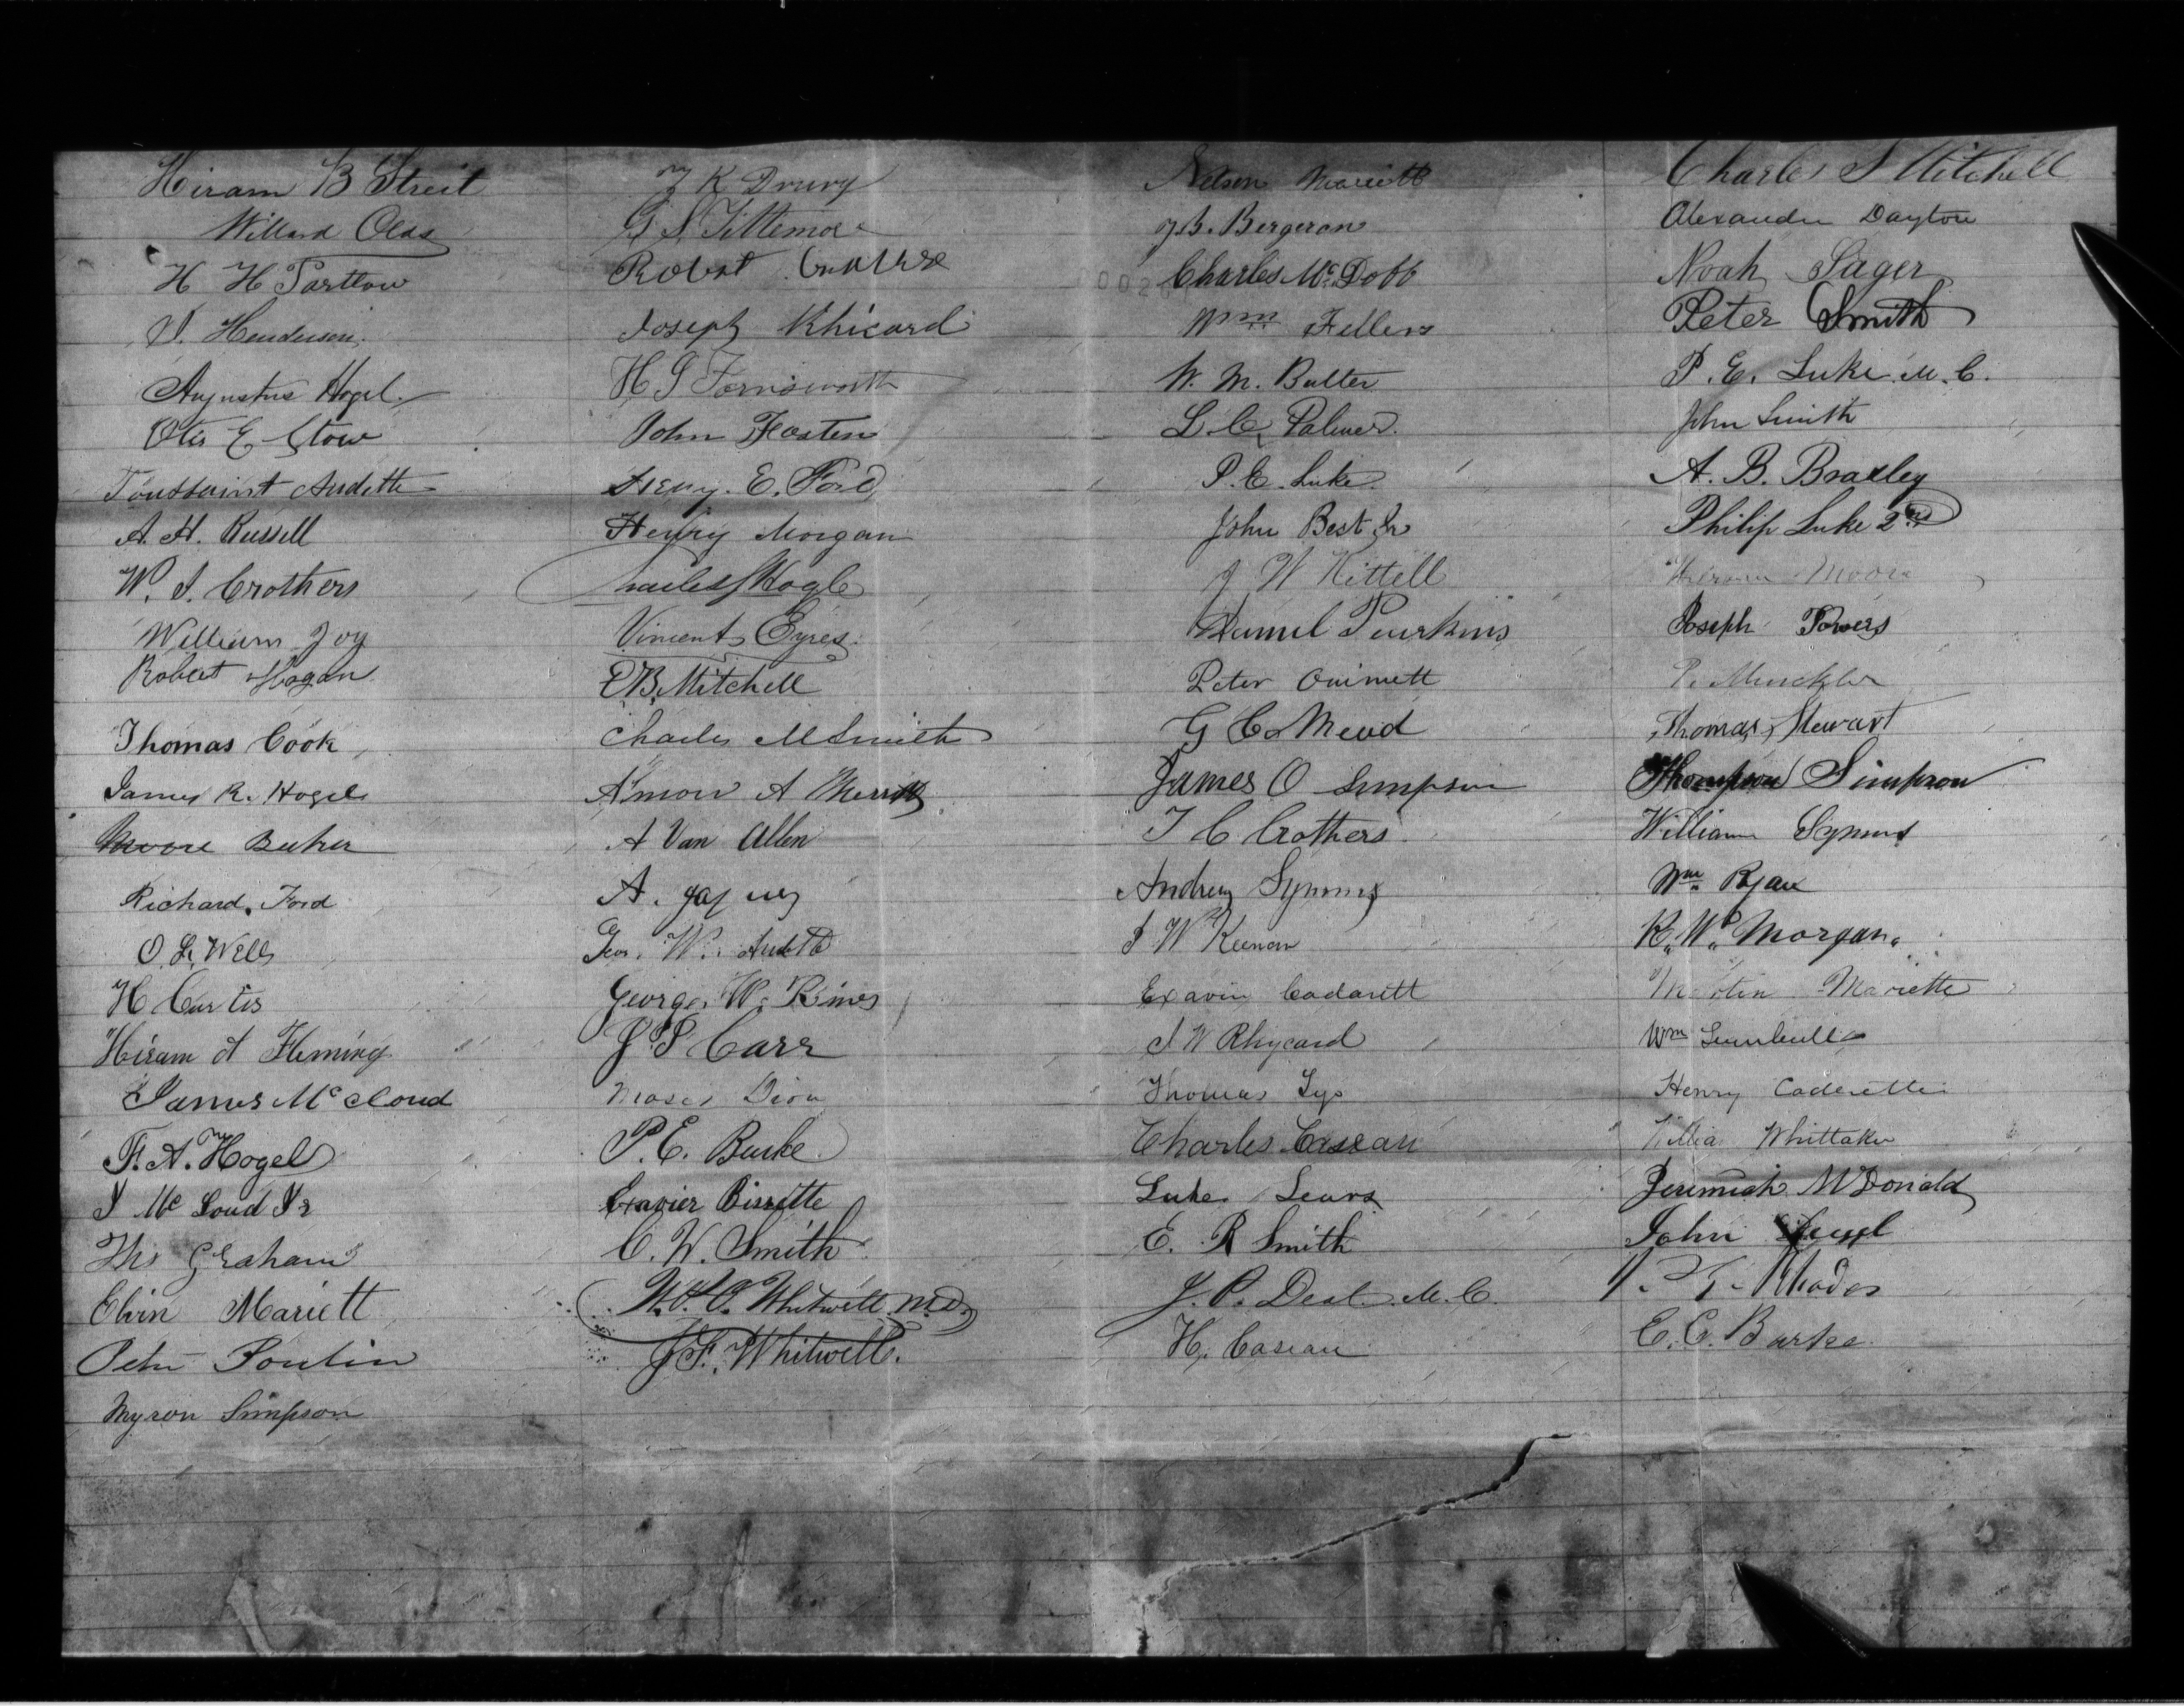 Hiram B Streit
Willard Olds
H H Partlow
Henderson
Augustus Hogel
Otis E Stow
Toussaint Audette
A. H. Russell
W. J. Crothers
William Joy
Robert Hogan
Thomas Cook
James R. Hogel
Moore Beeker
Richard Ford
O. L. Wells
H Curtis
Hiram A Fleming
James McCloud
F. A. Hogel
J Mc Loud Jr
Ths Graham
Elvin Mariett
Peter Poulin
Myron Simpson
K Drury
G S Tittemore
Robert
Joseph Rhicard
H S Farnsworth
John Hasten
Henry. E. Ford
Henry Morgan
Charles Hogle
Vincent Eyres
E B. Mitchell
Charles M Smith
Almon A Merritt
A Van Allen
A. Jaques
Geo. W. Audette
George. W. Rimes
J. P. Carr
Moses Dion
P. E. Burke
Exavier Bissette
C. W. Smith
W. Whitwell M.D.
J. F. Whitwell.
Nelson Mariette
J. B. Bergeron
Charles Mc. Dobb
Wm Fellers
W. M. Butler
L. C. Palmer.
P. C. Luke
John Best Jr
J W Kittell
Daniel Peurkins
Peter Ouimett
G C. Mead
James O Simpson
T C Crothers
Andrew Symms
J W Keenan
Exavie Cadarett
J W Rhycard
Thomas Lys
Charles Casean
Luke Sears
E. R Smith
J. P. Deal. M. C.
H, Casean
Charles S Mitchell
Alexander Dayton
Noah Sager
Peter Smith
P. E. Luke. M. C.
John Smith
A. B. Bradley
Philip Luke 2nd
Hiram Moore
Joseph Powers
P. Minckler
Thomas Stewart
Thompson Simpson
William Symms
Wm Ryan
R. W. Morgan.
Martin Mariette
Wm
Henry Caderette
William Whittaker
Jeremiah McDonald
John
Rhodes
C. C. Burke